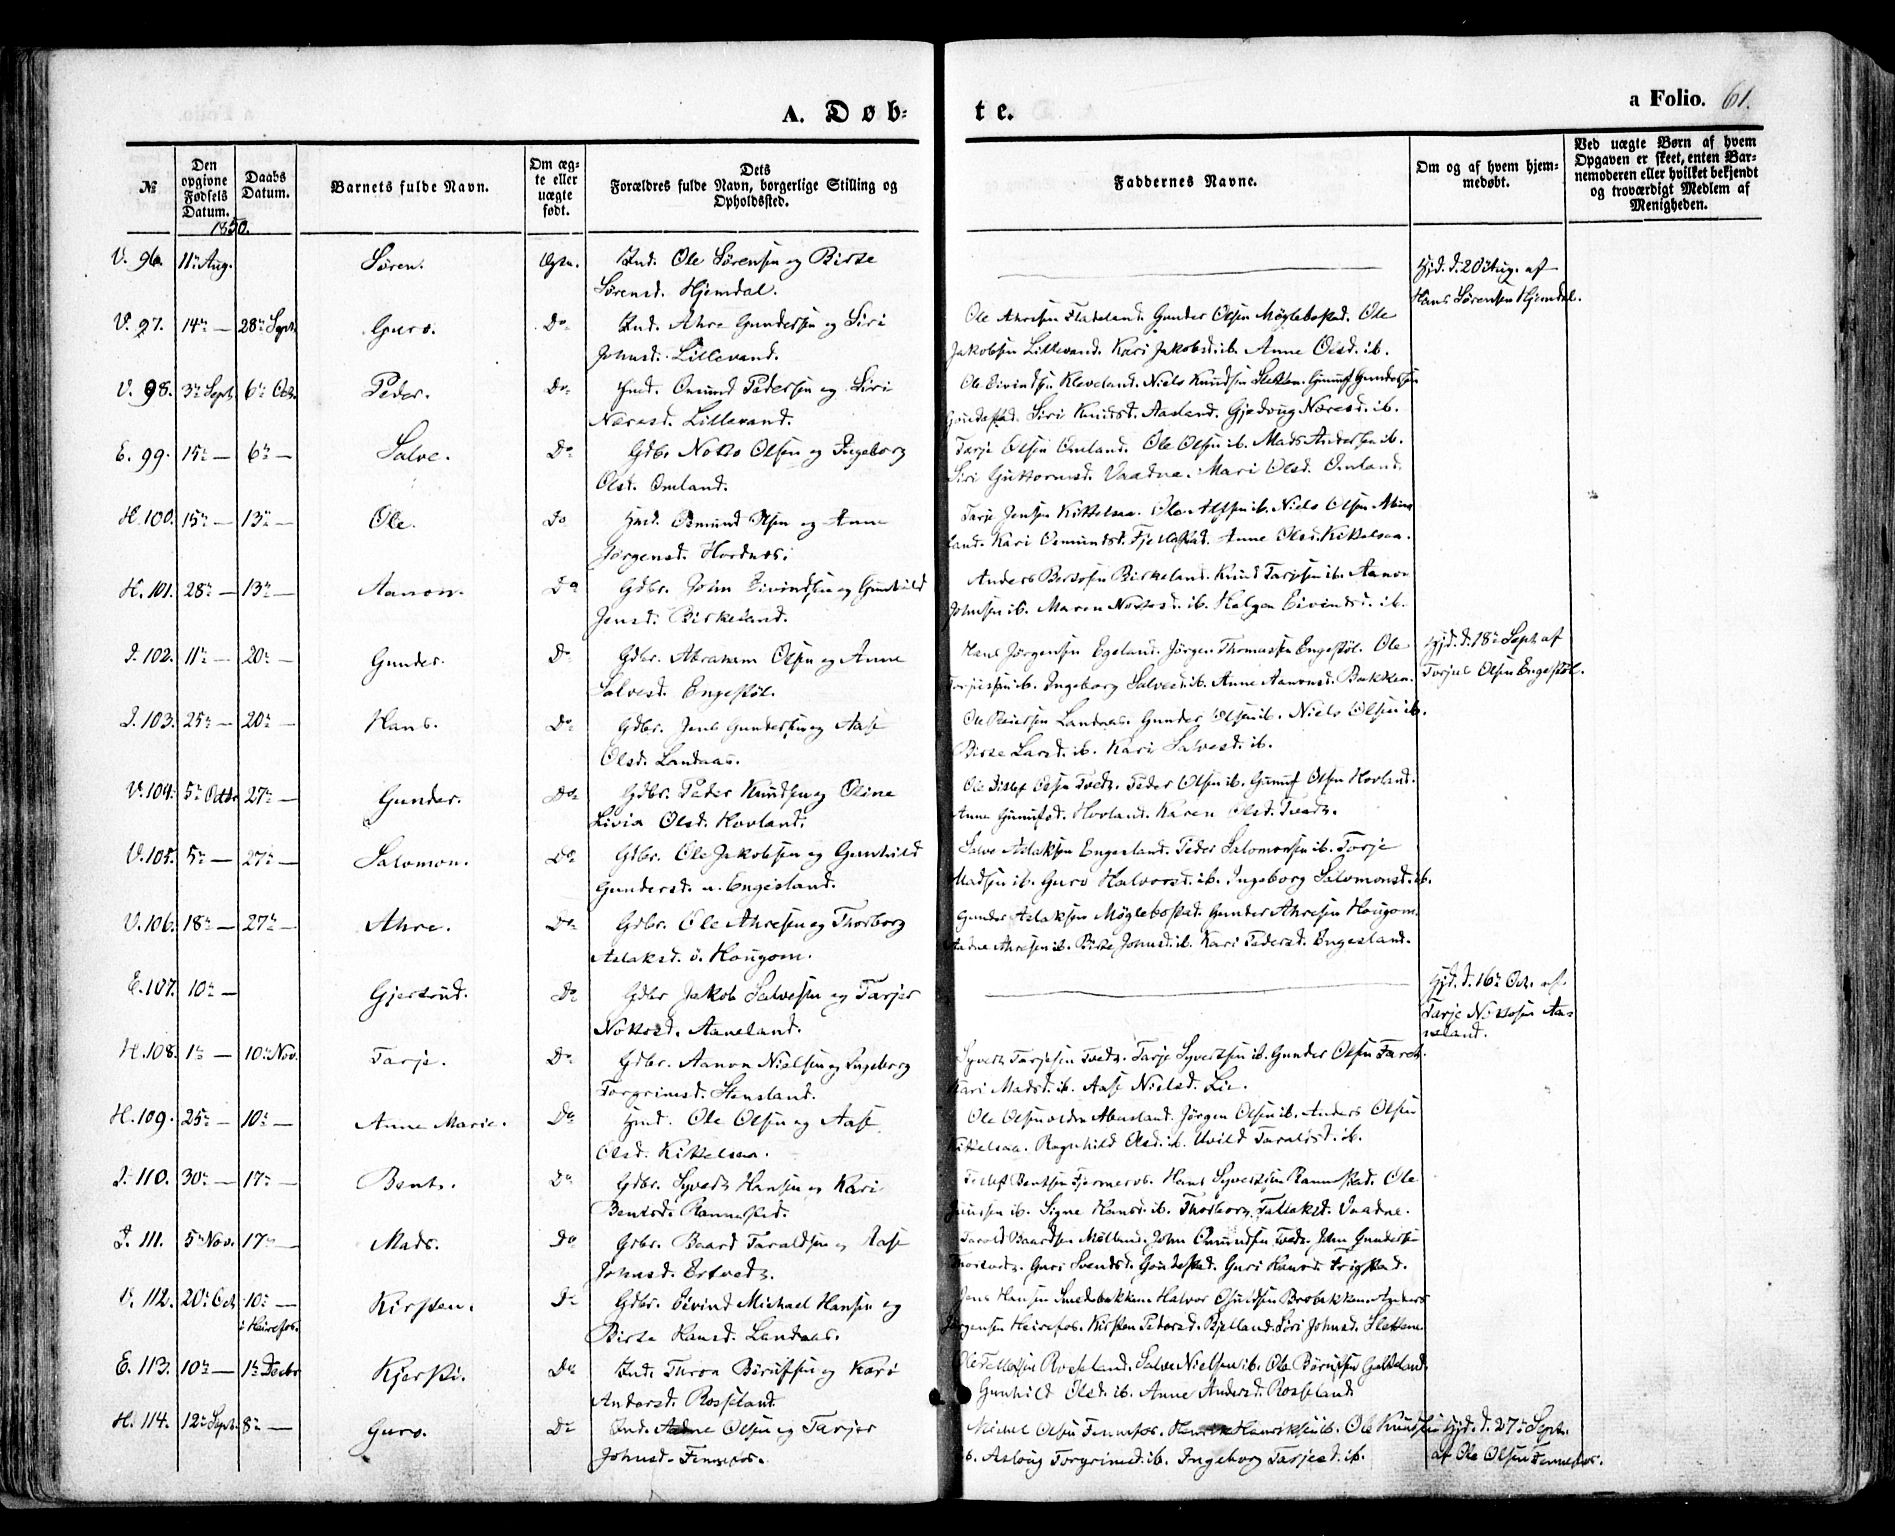 A. Døb-
te.
a Folio. 61.
№
Den opgivne Fødsels Datum.
Daabs Datum.
Barnets fulde Navn.
Om ægte eller uægte født.
Dets Forældres fulde Navn, borgerlige Stilling og Opholdssted.
Faddernes Navne.
Om og af hvem hjemmedøbt.
Ved uægte Børn af hvem Opgaven er skeet, enten Barnemoderen eller hvilket bekjendt og troværdigt Medlem af Menigheden.
1850.
V. 96. 11te Aug. Søren. Ægte. Ind. Ole Sørensen og Birte
Sørensd. Hjemdal.
Hjd. d. 20 Aug. af
Hans Sørensen Hjemdal.
V. 97. 14de — 28de Sept. Guro. Do Ind. Ahre Gundersen og Siri
Johnsd. Lillevand.
Ole Ahresen Fladeland. Gunder Olsen Møglebostad. Ole
Jakobsen Lillevand. Kari Jakobsd. ib. Anne Olsd. ib.
V. 98. 3de Sept. 6te Oct. Peder. Do Ind. Omund Pedersen og Siri
Næresd. Lillevand.
Ole Eivindsen Kleveland. Niels Knudsen Sletten. Gunuf Gundersen
Goudestad. Siri Knudsd. Aasland. Gjedoug Næresd. ib.
E. 99. 15de — 6te — Salve. Do Gdbr. Notto Olsen og Ingeborg
Olsd. Omland.
Tarje Olsen Omland. Ole Olsen ib. Mads Andersen ib.
Siri Guttormsd. Vaadne. Mari Olsd. Omland.
H. 100. 15de — 13de — Ole. Do Ind. Osmund Olsen og Anne
Jørgensd. Hordnes.
Tarje Jensen Kittelsaa. Ole Olsen ib. Niels Olsen
land. Kari Osmundsd. Fjellestad. Anne Olsd. Kittelsaa.
H. 101. 28de — 13de — Aanon. Do Gdbr. John Eivindsen og Gunhild
Jensd. Birkeland.
Anders Berdosen Birkeland. Knud Tarjesen ib. Aanon
Johnsen ib. Maren Nottosd. ib. Helgen Eivindsd. ib.
I. 102. 11te — 20de — Gunder. Do Gdbr. Abraham Olsen og Anne
Salvesd. Engestøl.
Hans Jørgensen Egeland. Jørgen Thomassen Engestøl. Ole
Torjussen ib. Ingeborg Salvesd. ib. Anne Aanonsd. Bakken.
Hjd. d. 18de Sept. af
Torjus Olsen Engestøl.
I. 103. 25de — 20de — Hans. Do Gdbr. Jens Gundersen og Aase
Olsd. Landaas.
Ole Reiersen Landaas. Gunder Olsen ib. Niels Olsen ib.
Birte Larsd. ib. Kari Salvesd. ib.
V. 104. 5te Octbr 27de — Gunder. Do Gdbr. Peder Knudsen og Oline
Livia Olsd. Hovland.
Ole Ditlef Olsen Tvedt. Peder Olsen ib. Gunuf Olsen Hovland.
Anne Gunufsd. Hovland. Karen Olsd. Tvedt.
V. 105. 5te — 27de — Salomon. Do Gdbr. Ole Jakobsen og Gunhild
Gundersd. n. Engesland.
Salve Aslaksen Engesland. Peder Salomonsen ib. Torje
Madsen ib. Guro Halvorsd. ib. Ingeborg Salomonsd. ib.
V. 106. 18de — 27de — Ahre. Do Gdbr. Ole Ahresen og Thorborg
Aslaksd. ö. Hougom.
Gunder Aslaksen Møglebostad. Gunder Ahresen Hougom.
Aadne Ahresen ib. Birte Johnsd. ib. Kari Pedersd. Engesland.
E. 107. 10de — Gjertrud. Do Gdbr. Jakob Salvesen og Tarjer
Nottosd. Aaneland.
Hjd. d. 16de Oct. af
Tarje Nottosen Aa-
neland.
H. 108. 1ste — 10de Nov. Tarje. Do Gdbr. Aanon Nielsen og Ingeborg
Torgrimsd. Stensland.
Syvert Tarjesen Tvedt. Tarje Syvertsen ib. Gunder Olsen
Kari Madsd. ib. Aase Nielsd. Lie.
H. 109. 25de — 10de — Anne Marie. Do Ind. Ole Olsen og Aase
Olsd. Kittelsaa.
Ole Olsen Abusland. Jørgen Olsen ib. Anders Olsen
Kittelsaa. Ragnhild Olsd. ib. Taraldsd. ib.
I. 110. 30de — 17de — Bent. Do Gdbr. Syvert Hansen og Kari
Bentsd. Rannestad.
Tellef Bentsen Fjermeros. Hans Syvertsen Rannestad. Ole
Jensen ib. Signe Hansd. ib. Thorborg Tallaksd. Vaadne.
I. 111. 5te Nov. 17de — Mads. Do Gdbr. Baard Taraldsen og Aase
Johnsd. Ertvedt.
Tarald Baardsen Mølland. John Omundsen Tvedt. John Gundersen
Guri Svendsd. Goudestad. Guri Hansd. Frigstad.
V. 112. 20de Oct. 10de —
i Heirefos.
Kirsten. Do Gdbr. Eivind Michael Hansen og
Birte Hansd. Landaas.
Jens Hansen Smedebakken. Halvor Osuldsen Brobakken. Anders
Jørgensen Heirefos. Kirsten Pedersd. Bjelland. Siri Johnsd. Slettene
E. 113. 10de — 1ste Decbr Kjersti. Do Ind. Thron Berulfsen og Kari
Andersd. Rosseland
Ole Tellefsen Rosseland. Salve Nielsen ib. Ole
Gunhild Olsd. ib. Anne Andersd. Rosseland
H. 114. 12te Sept. 8de — Guro. Do Ind. Aadne Olsen og Tarjer
Johnsd. Fennefos.
Michel Olsen Fennefos. Henriksen ib. Ole Knudsen
ib. Aslaug Torgrimsd. ib. Ingeborg Tarjesd. ib.
Hjd. d. 27de Sept.
af Ole Olsen Fennefos.